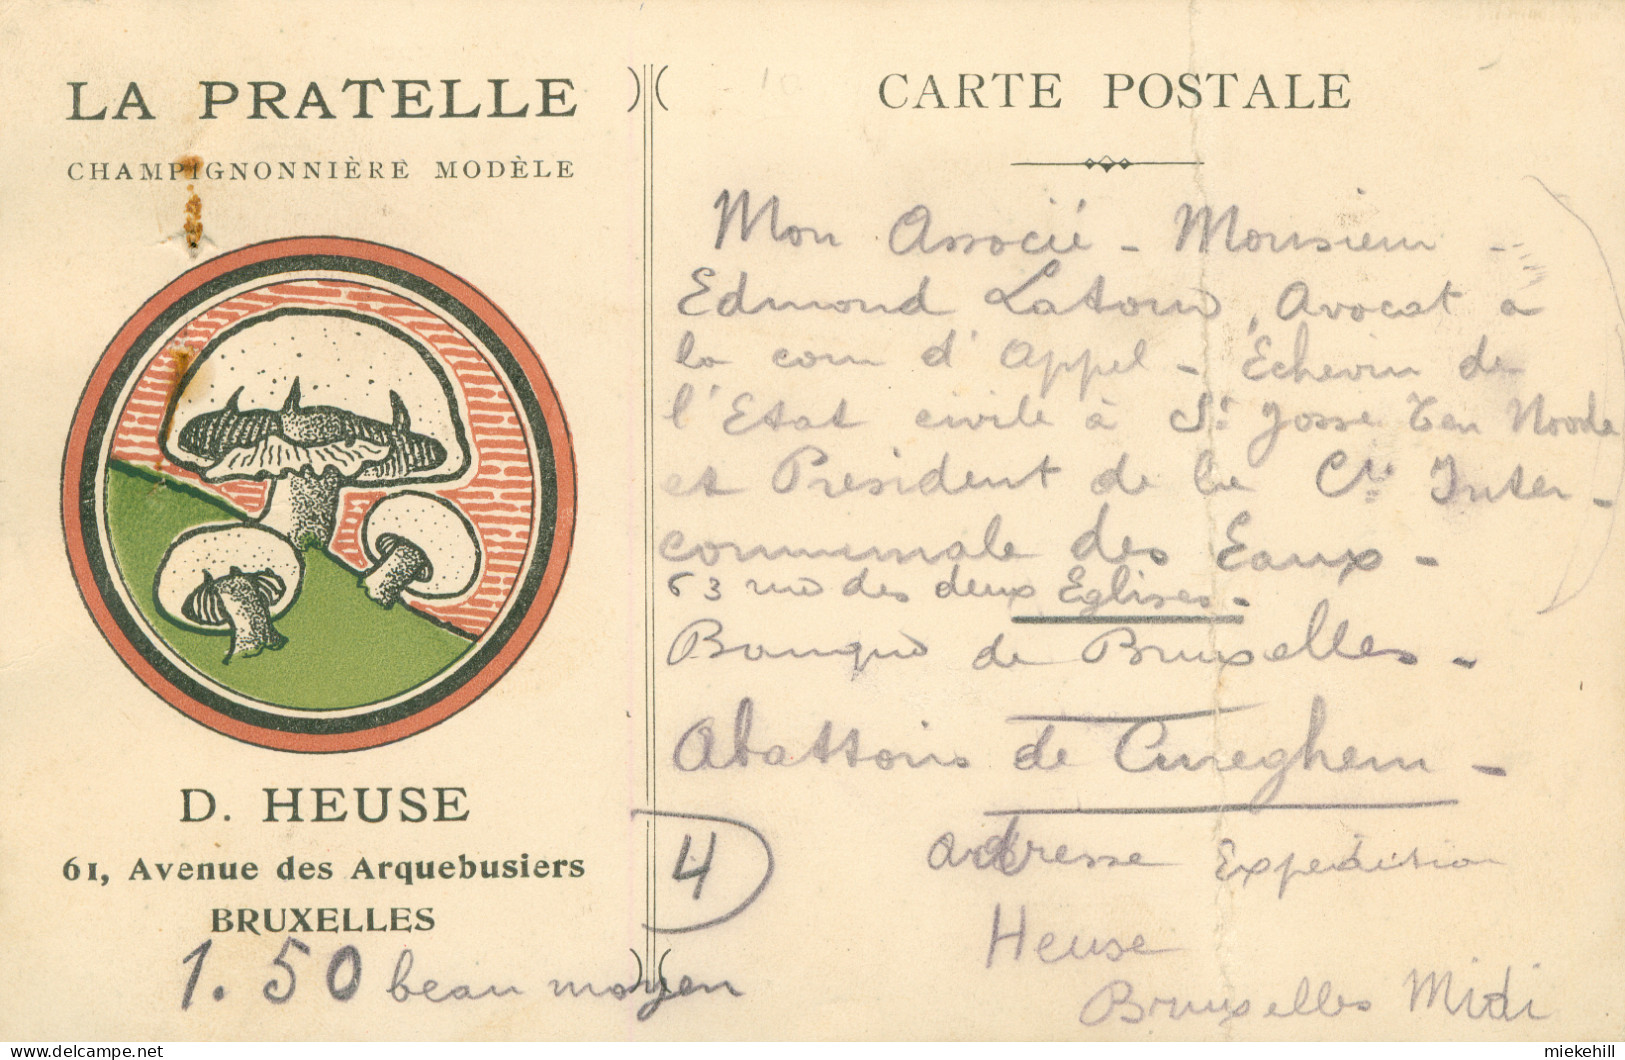 LA PRATELLE
CHAMPIGNONNIÈRE MODÈLE
D. HEUSE
61, Avenue des Arquebusiers
BRUXELLES
1.50 beau moyen
CARTE POSTALE
Mon Associé - Monsieur -
Edmond Latour, Avocat à
la cour d'Appel - Echevin de
l'Etat civile à St Josse Ten Noode
et President de la Cie Inter-
communale des Eaux -
63 rue des deux Eglises -
Banque de Bruxelles -
Abattoirs de Cureghem -
4
adresse Expedition
Heuse
Bruxelles Midi
miekehill